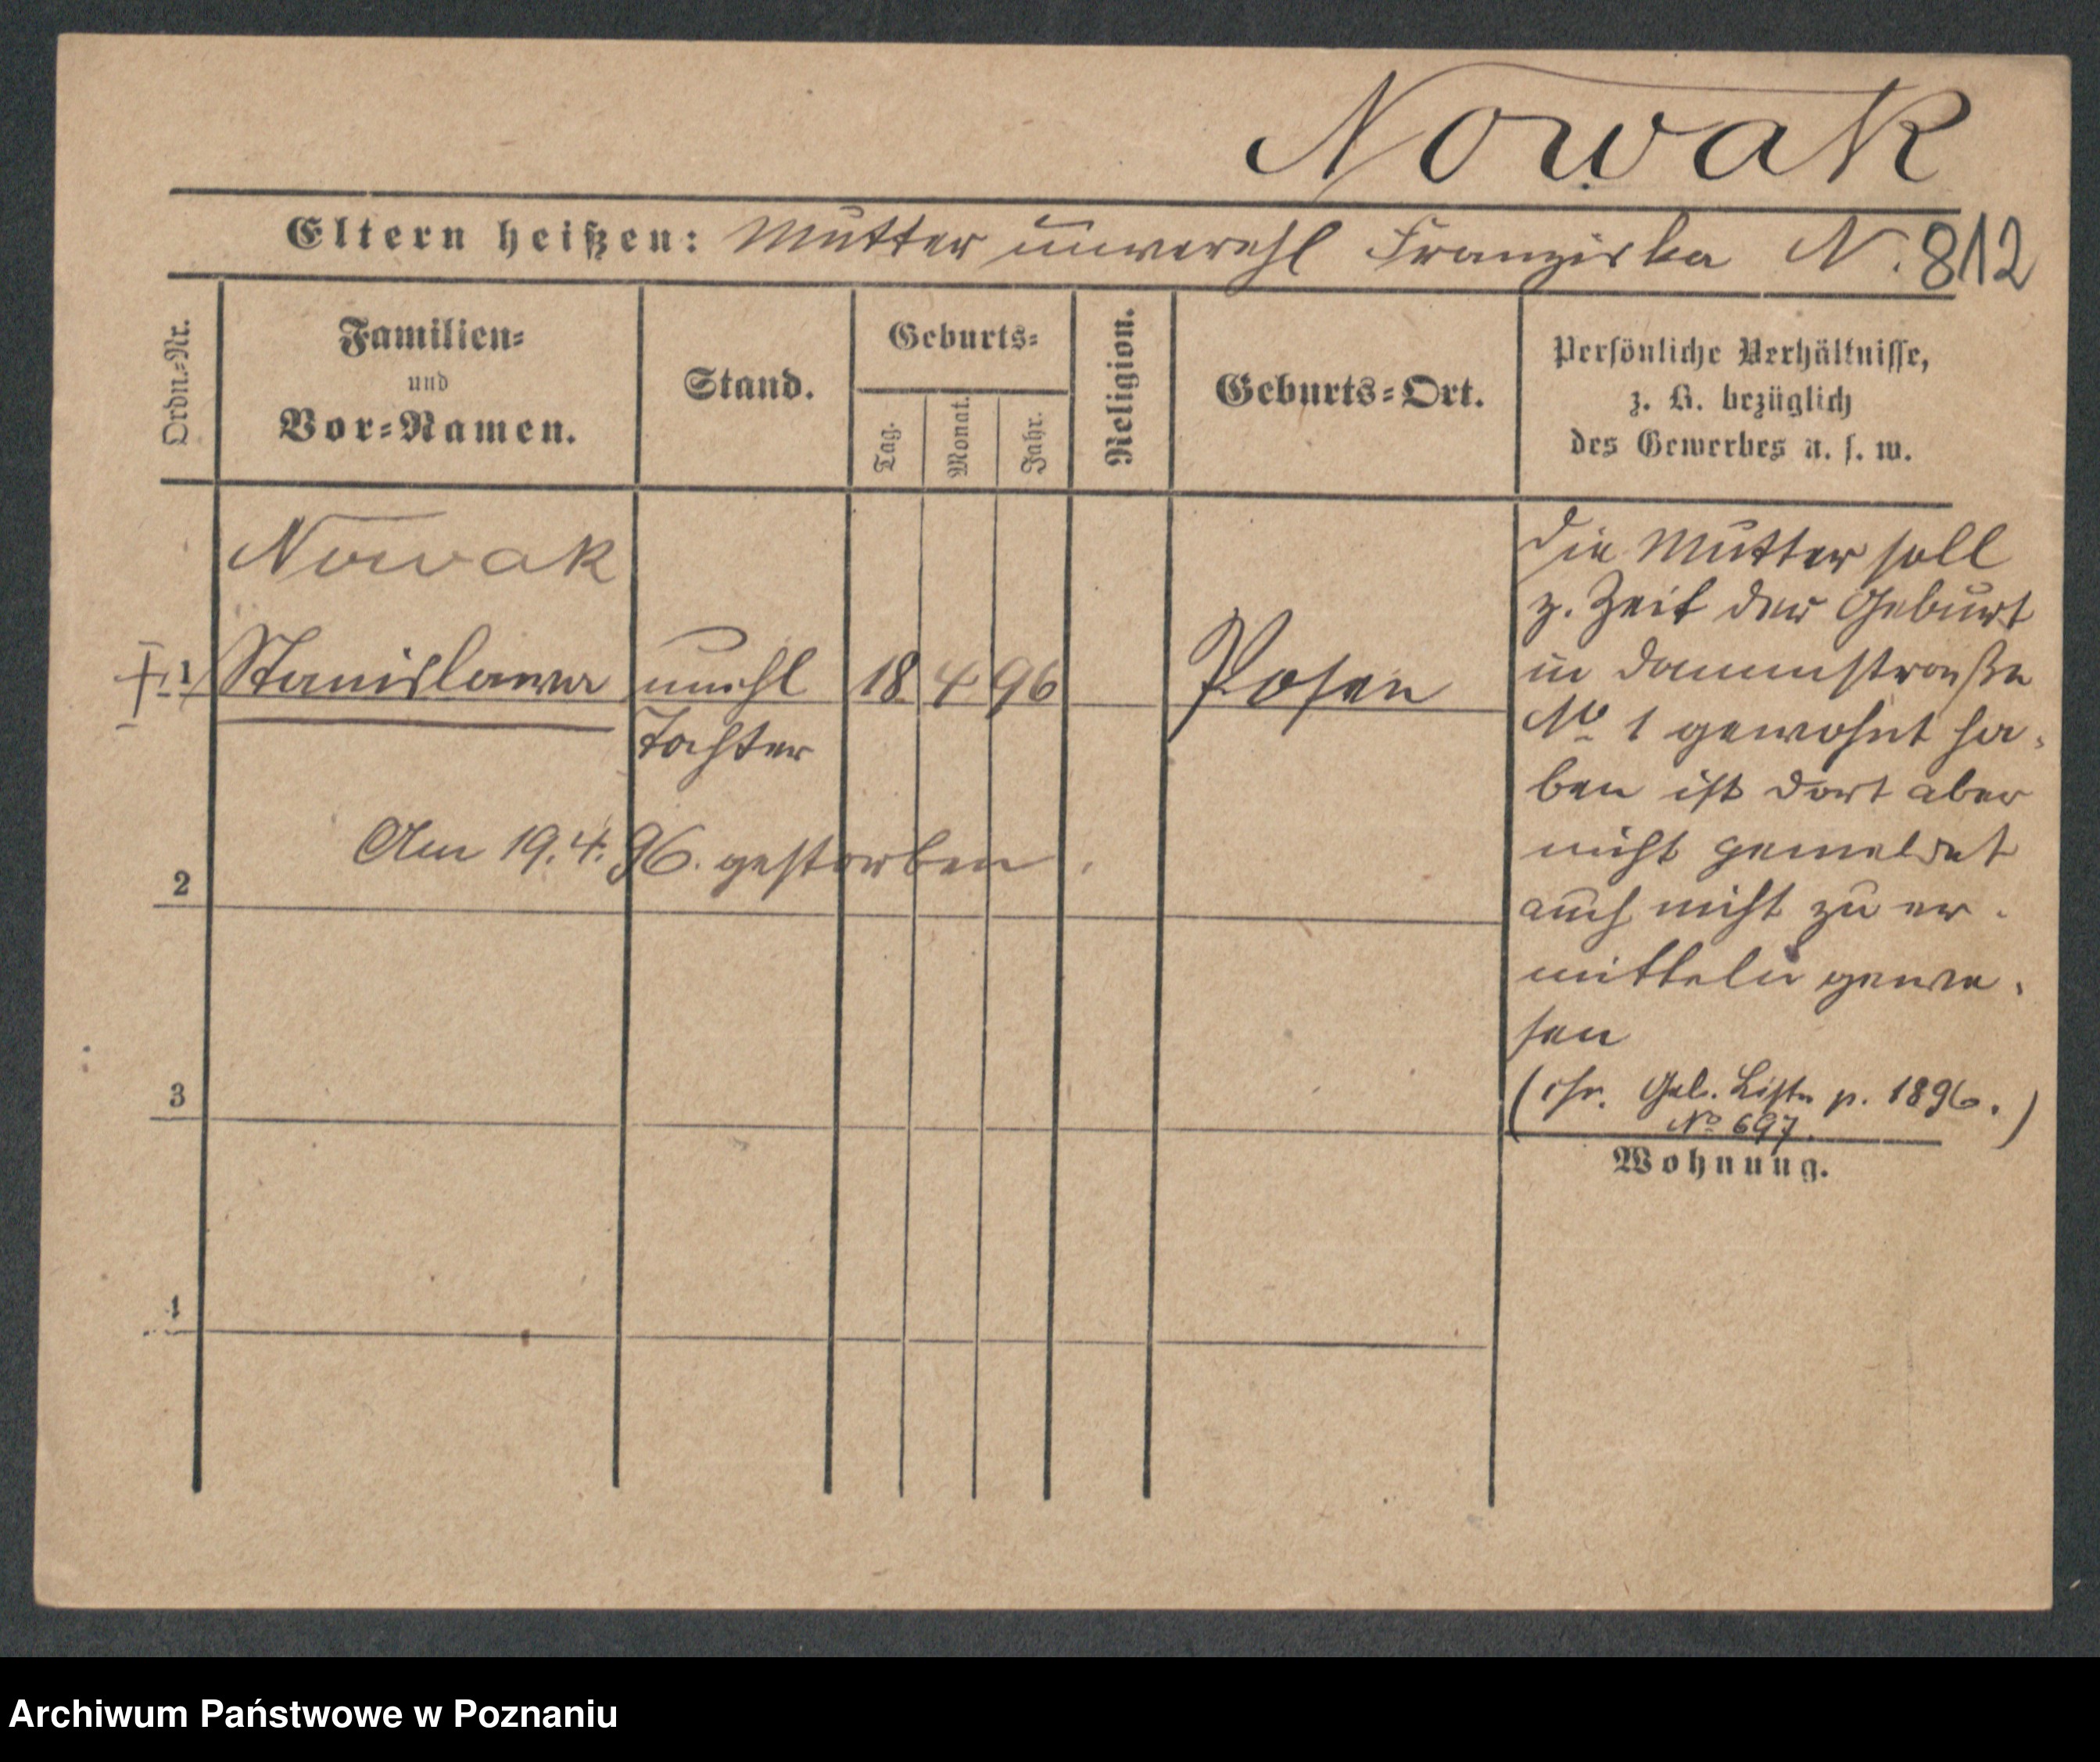 Nowak
Eltern heißen: Mutter unverehl Franziska N. 812
Ordn.-Nr.
Familien-
und
Vor-Namen.
Stand.
Geburts-
Tag.
Monat.
Jahr.
Religion.
Geburts-Ort.
Persönliche Verhältnisse,
z. B. bezüglich
des Gewerbes u. s. w.
Nowak
1 Stanislawa unehl 18 4 96 Posen
Tochter
Am 19. 4. 96. gestorben.
2
3
4
die Mutter soll
z. Zeit der Geburt
in Dammstraße
No 1 gewohnt ha-
ben ist dort aber
nicht gemeldet
auch nicht zu er-
mitteln gewe-
sen
Geb. Liste p. 1896.)
No 697.
Wohnung.
Archiwum Państwowe w Poznaniu